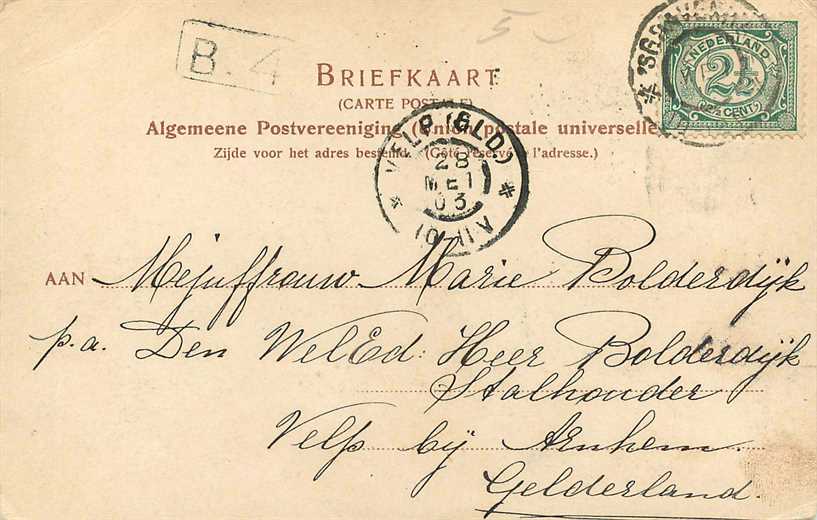 B. 4
5
'SGRAVENHA
NEDERLAND
2½
(2½ CENT)
BRIEFKAART
(CARTE POSTALE)
Algemeene Postvereeniging (Union postale universelle)
Zijde voor het adres bestemd. (Côté réservé à l'adresse.)
VELP (GLD.)
28
MEI
03
AAN Mejuffrouw Marie Bolderdijk
p.a. Den WelEd: Heer Bolderdijk
Stalhouder
Velp bij Arnhem.
Gelderland.